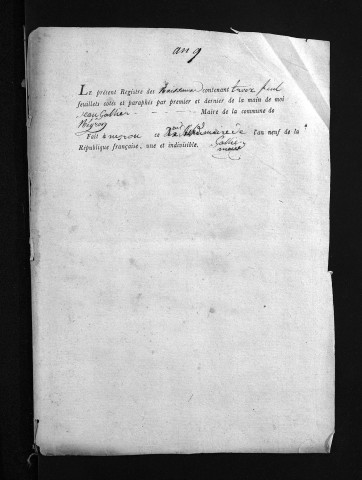 an 9
Le présent Registre des Naissances contenant trois feuil
feuillets cotés et paraphés par premier et dernier de la main de moi
Jean Maire de la commune de
Fait à ce l'an neuf de la
République française, une et indivisible.
maire